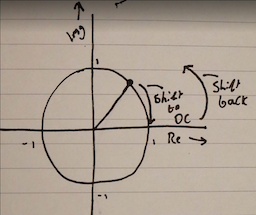 Img
1
Shift
to
DC
Shift
back
-1
1
Re
-1